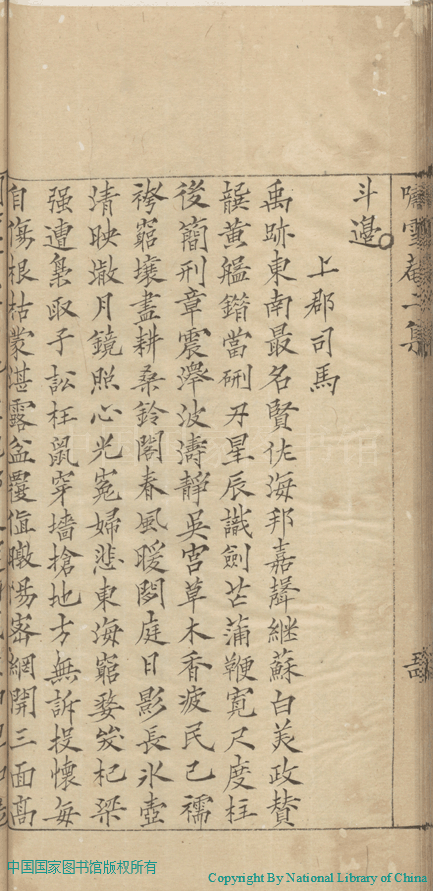 嘯雪菴二集
斗邊。
上郡司馬
禹跡東南最名賢佐海邦嘉聲継蘇白美政贊
龔黄艦鍇當硎刃星辰識劍芒蒲鞭寛尺度柱
後簡刑章震澤波濤靜吳宫草木香疲民已襦
袴窮壤盡耕桑鈴閣春風暖閎庭日影長氷壺
清映澈月鏡照心光寃婦悲東海窮嫠哭杞梁
强遭梟取子訟枉鼠穿墻搶地方無訴投懷每
自傷根枯蒙湛露盆覆值暾暘密網開三面髙
中国国家图书馆版权所有
Copyright By National Library of China